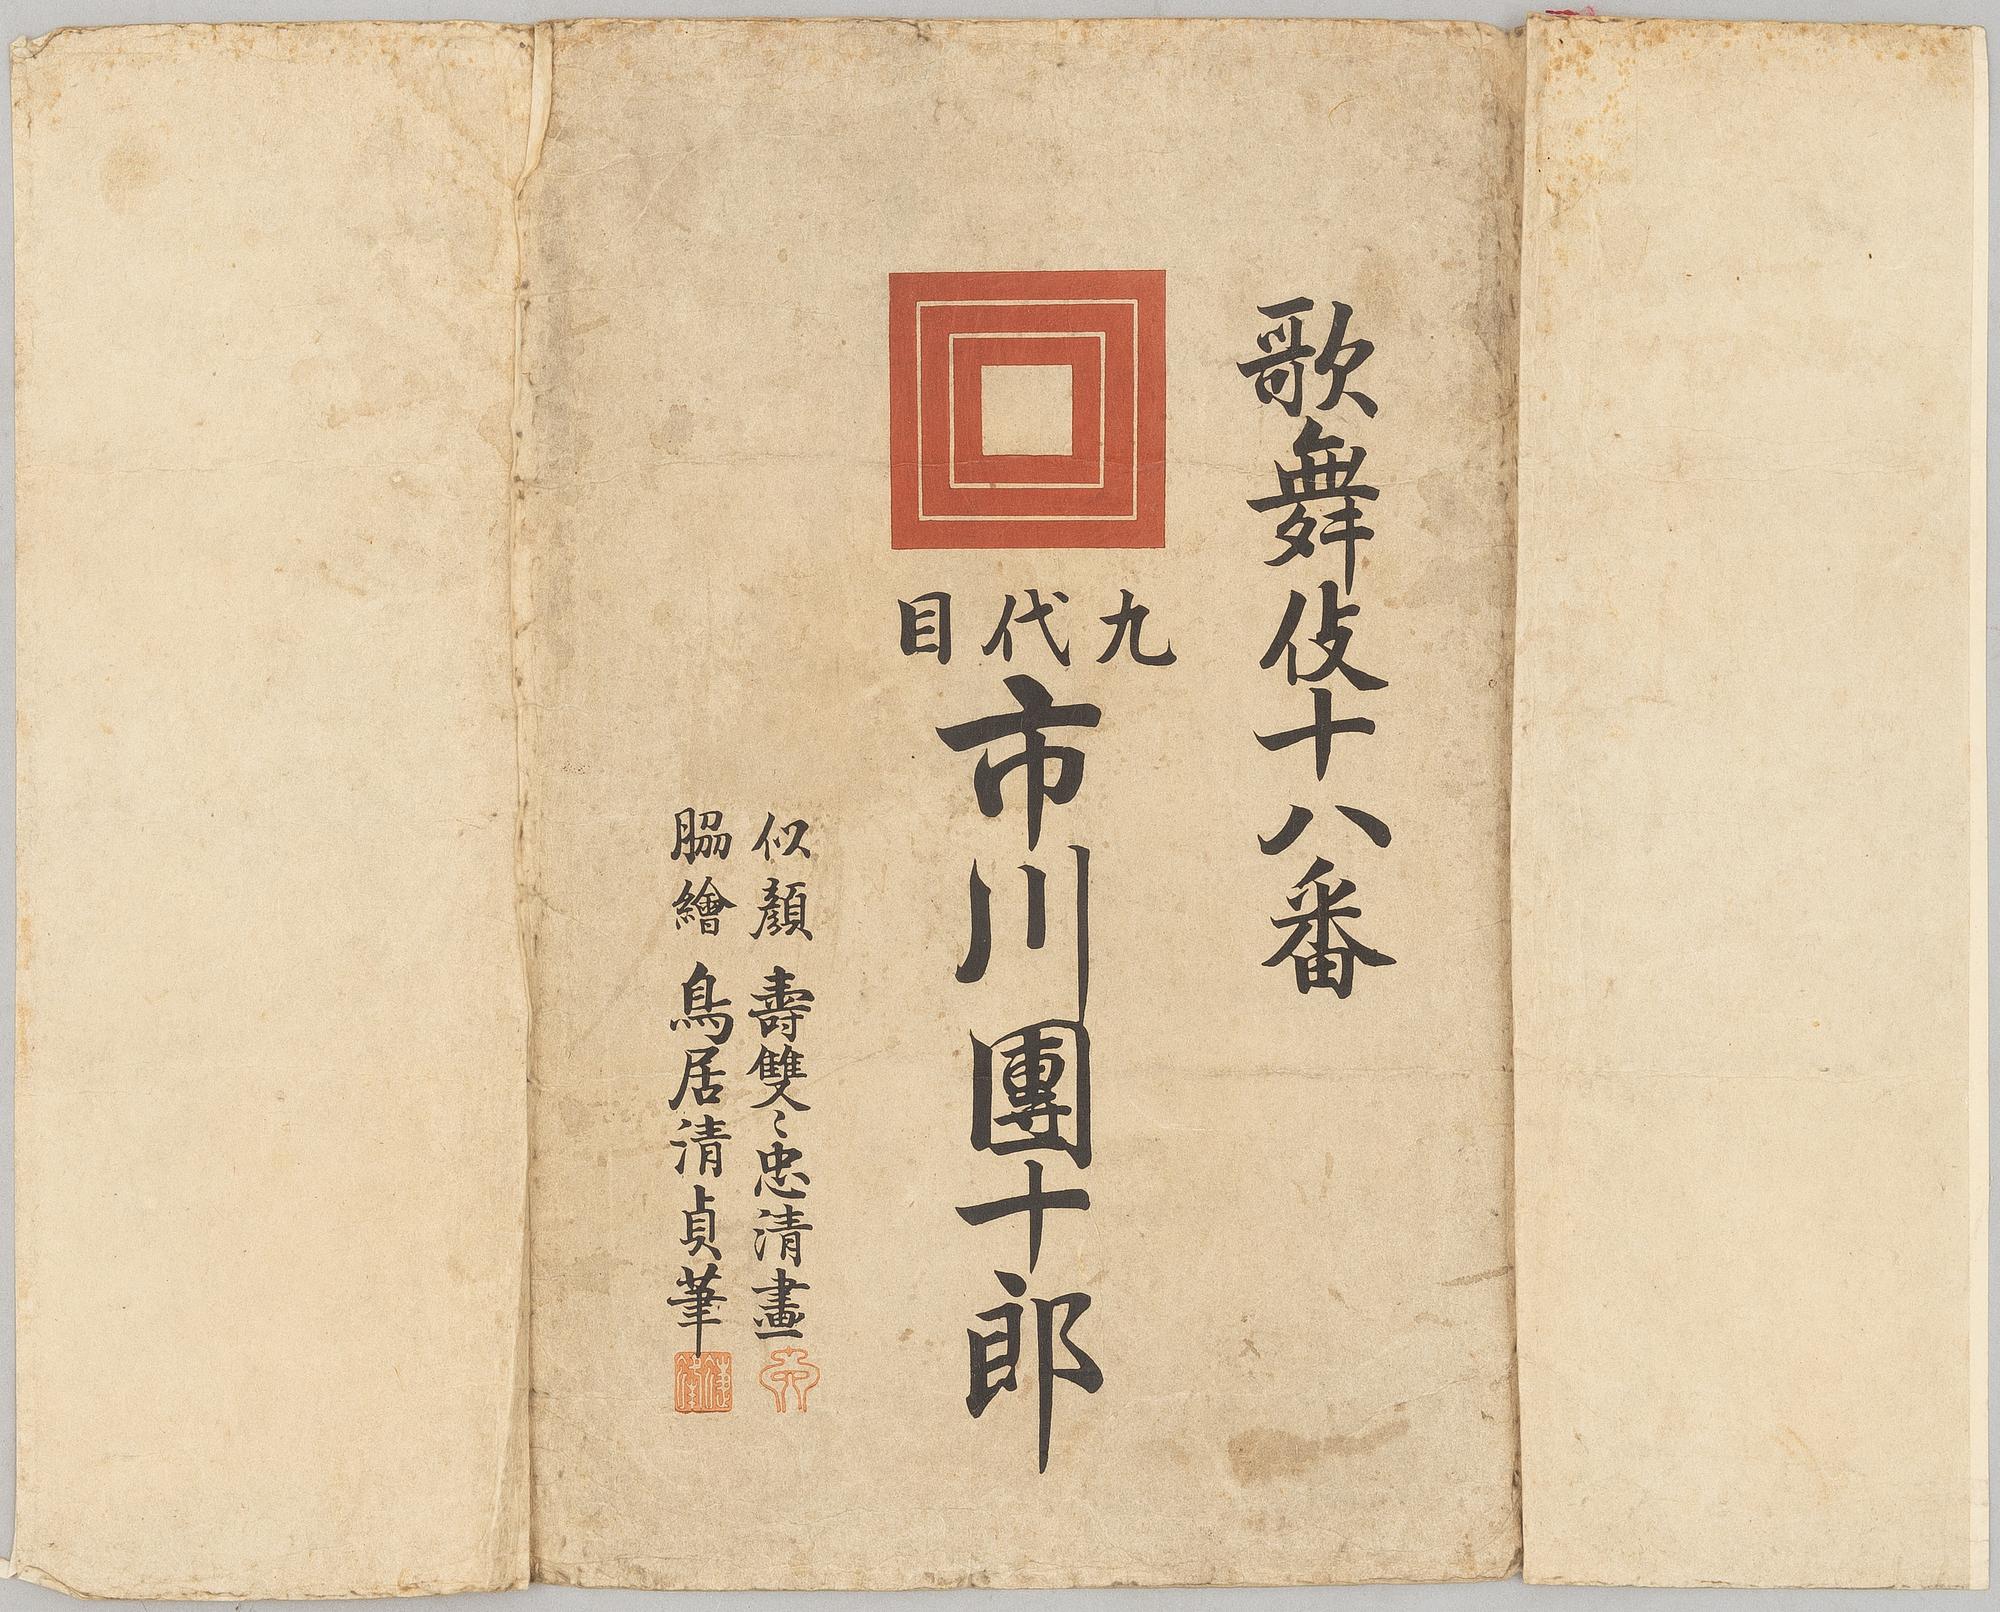 歌舞伎十八番
九代目
市川團十郎
似顔 壽雙〻忠清畫
脇繪 鳥居清貞筆